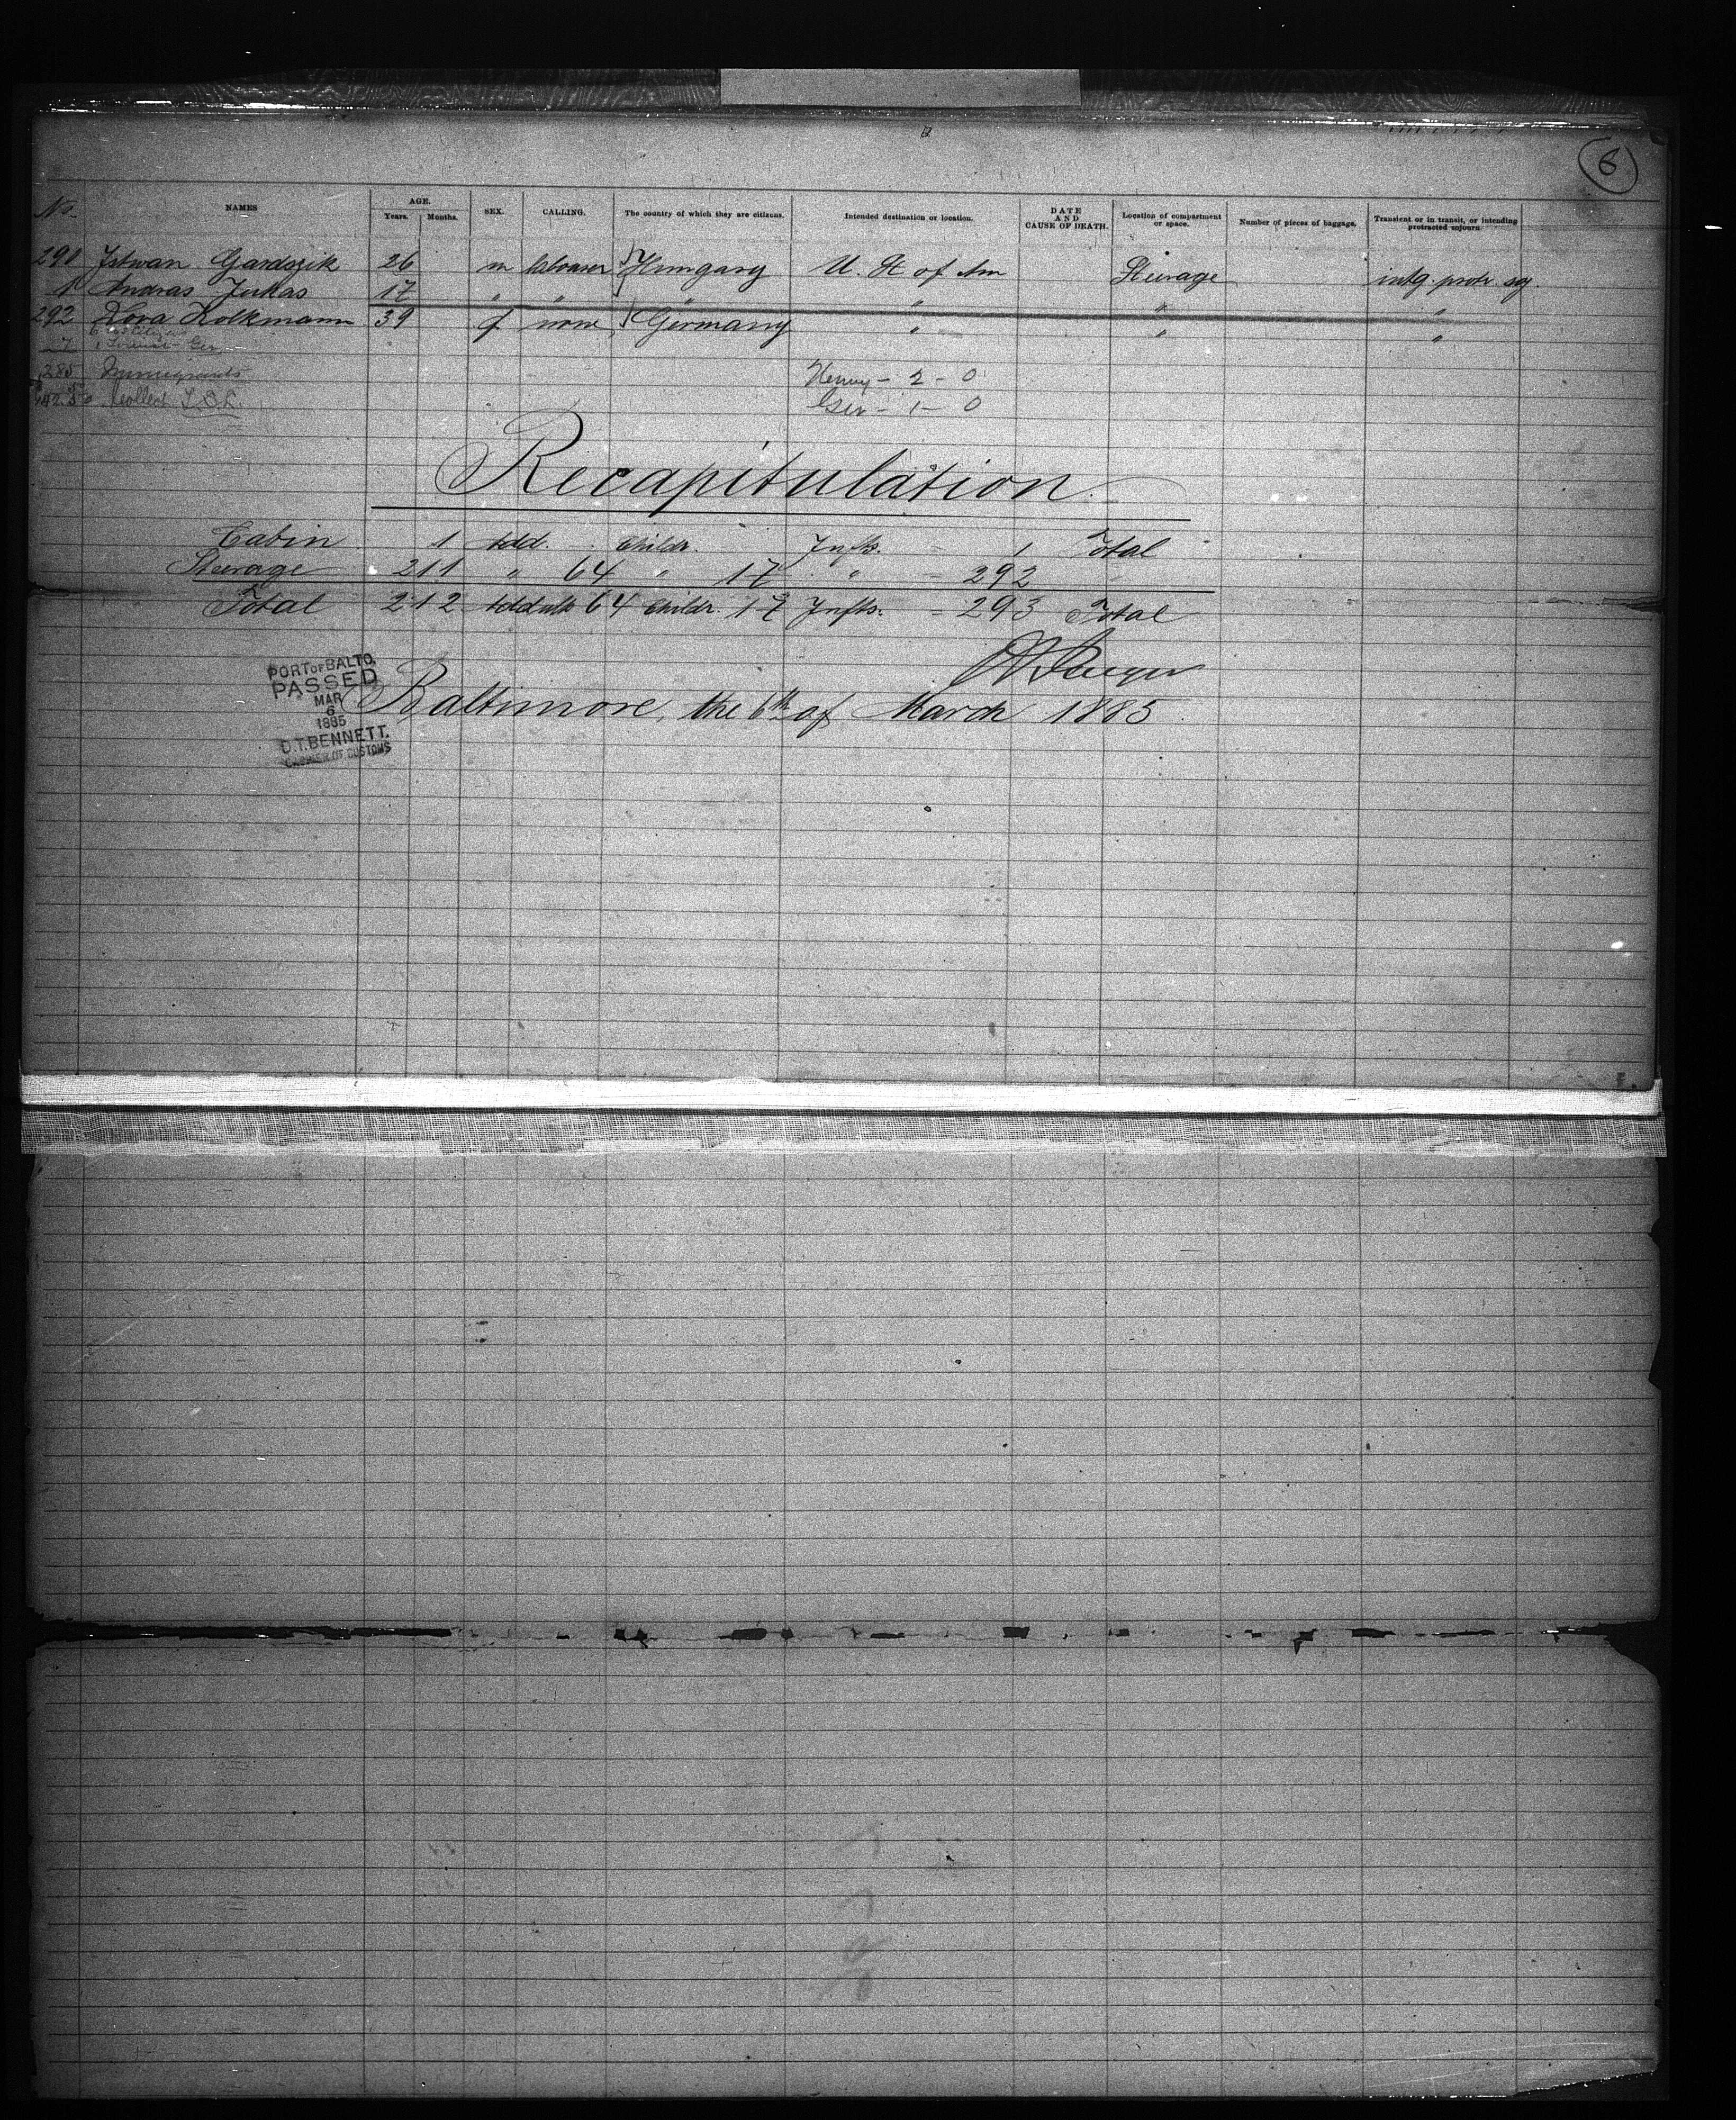 6
No. NAMES AGE. Years. Months. SEX. CALLING. The country of which they are citizens. Intended destination or location. DATE AND CAUSE OF DEATH. Location of compartment or space. Number of pieces of baggage. Transient or in transit, or intending protracted sojourn
290 Istwan Gardszik 26 m labourer Hungary U. St of Am Steerage intg. protr. soj.
1 Andras Juhas 17 " " " " " "
292 Dora Kolkmann 39 f none Germany " " "
285 Immigrants Hung - 2 - 0
Collect Ger - 1 - 0
Recapitulation.
Cabin 1 Add. - Childr. - Infts. - 1 Total
Steerage 211 " 64 " 17 " - 292
Total 212 Addults 64 Childr. 17 Infts. - 293 Total
PORT OF BALTO.
PASSED
MAR
6
1885
D.T. BENNETT.
OF CUSTOMS
Baltimore, the 6th of March 1885.